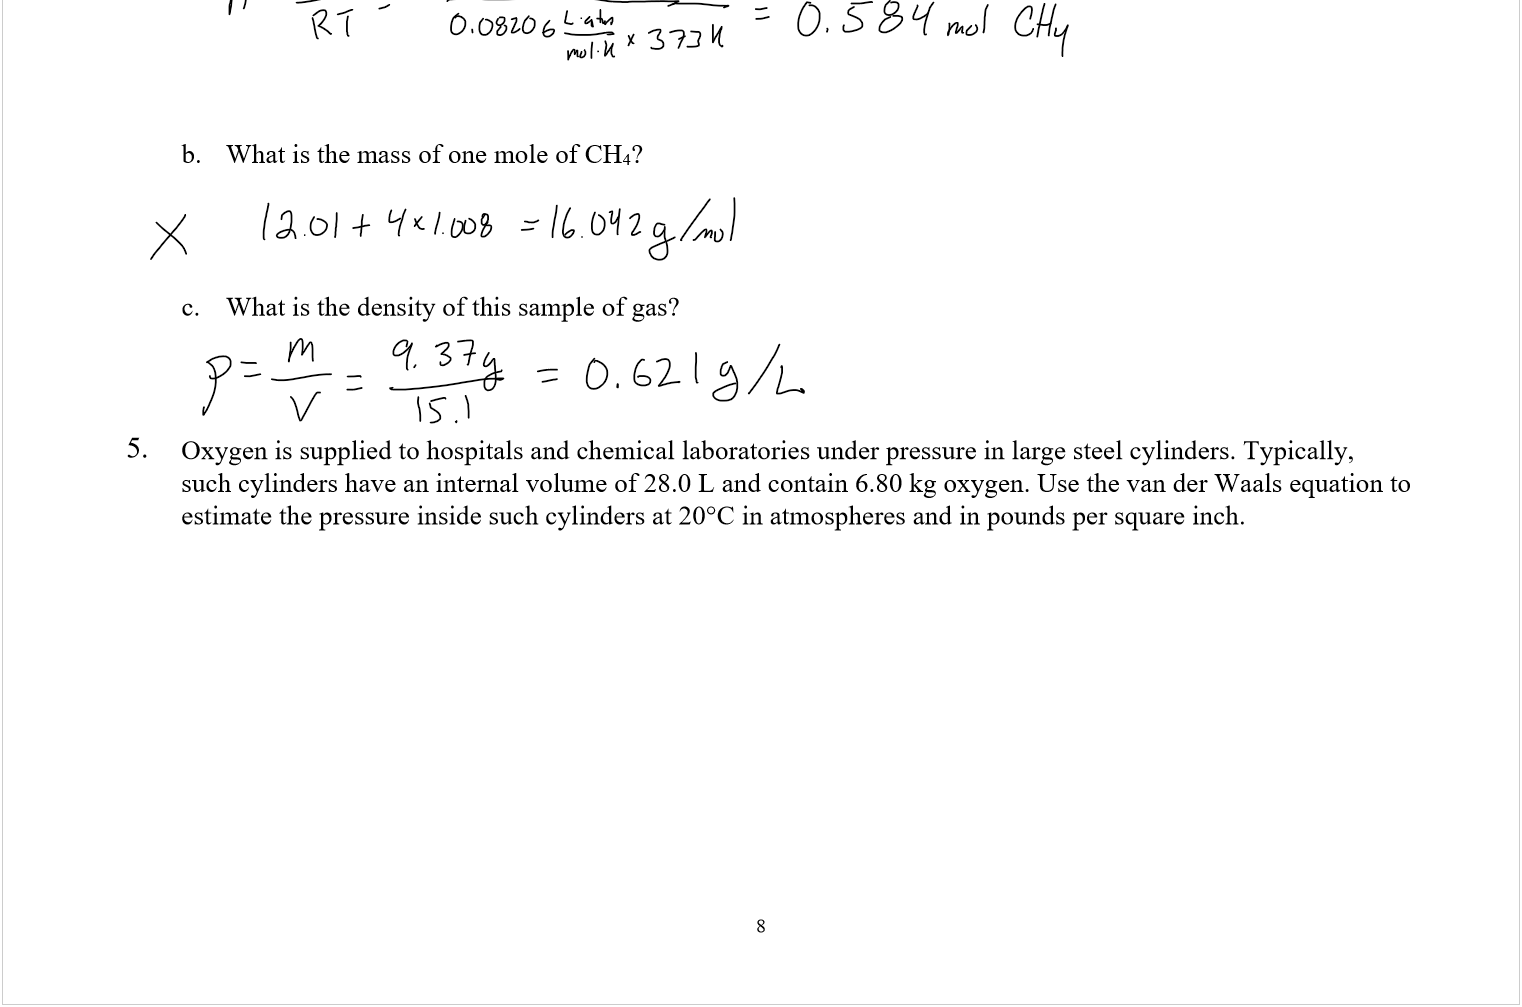 RT = 0.08206 L·atm/mol·K × 373 K = 0.584 mol CH4
b. What is the mass of one mole of CH₄?
X 12.01 + 4 × 1.008 = 16.042 g/mol
c. What is the density of this sample of gas?
ρ = m/V = 9.37g/15.1 = 0.621 g/L
5. Oxygen is supplied to hospitals and chemical laboratories under pressure in large steel cylinders. Typically,
such cylinders have an internal volume of 28.0 L and contain 6.80 kg oxygen. Use the van der Waals equation to
estimate the pressure inside such cylinders at 20°C in atmospheres and in pounds per square inch.
8